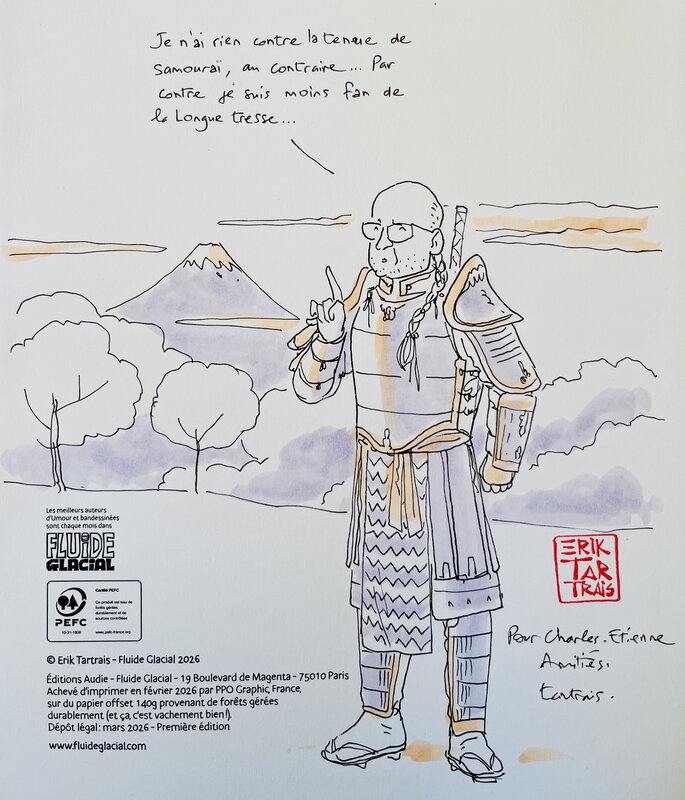 Je n'ai rien contre la tenue de
Samouraï, au contraire... Par
contre je suis moins fan de
la Longue tresse...
Les meilleurs auteurs
d'Umour et bandessinées
sont chaque mois dans
FLUIDE
GLACIAL
PEFC
10-31-1800
Certifié PEFC
Ce produit est issu de
forêts gérées
durablement et de
sources contrôlées
www.pefc-france.org
© Erik Tartrais - Fluide Glacial 2026
Éditions Audie - Fluide Glacial - 19 Boulevard de Magenta - 75010 Paris
Achevé d'imprimer en février 2026 par PPO Graphic, France,
sur du papier offset 140g provenant de forêts gérées
durablement (et ça, c'est vachement bien !).
Dépôt légal : mars 2026 - Première édition
www.fluideglacial.com
ERIK
TAR
TRAIS
Pour Charles-Etienne
Amitiés.
tartrais.